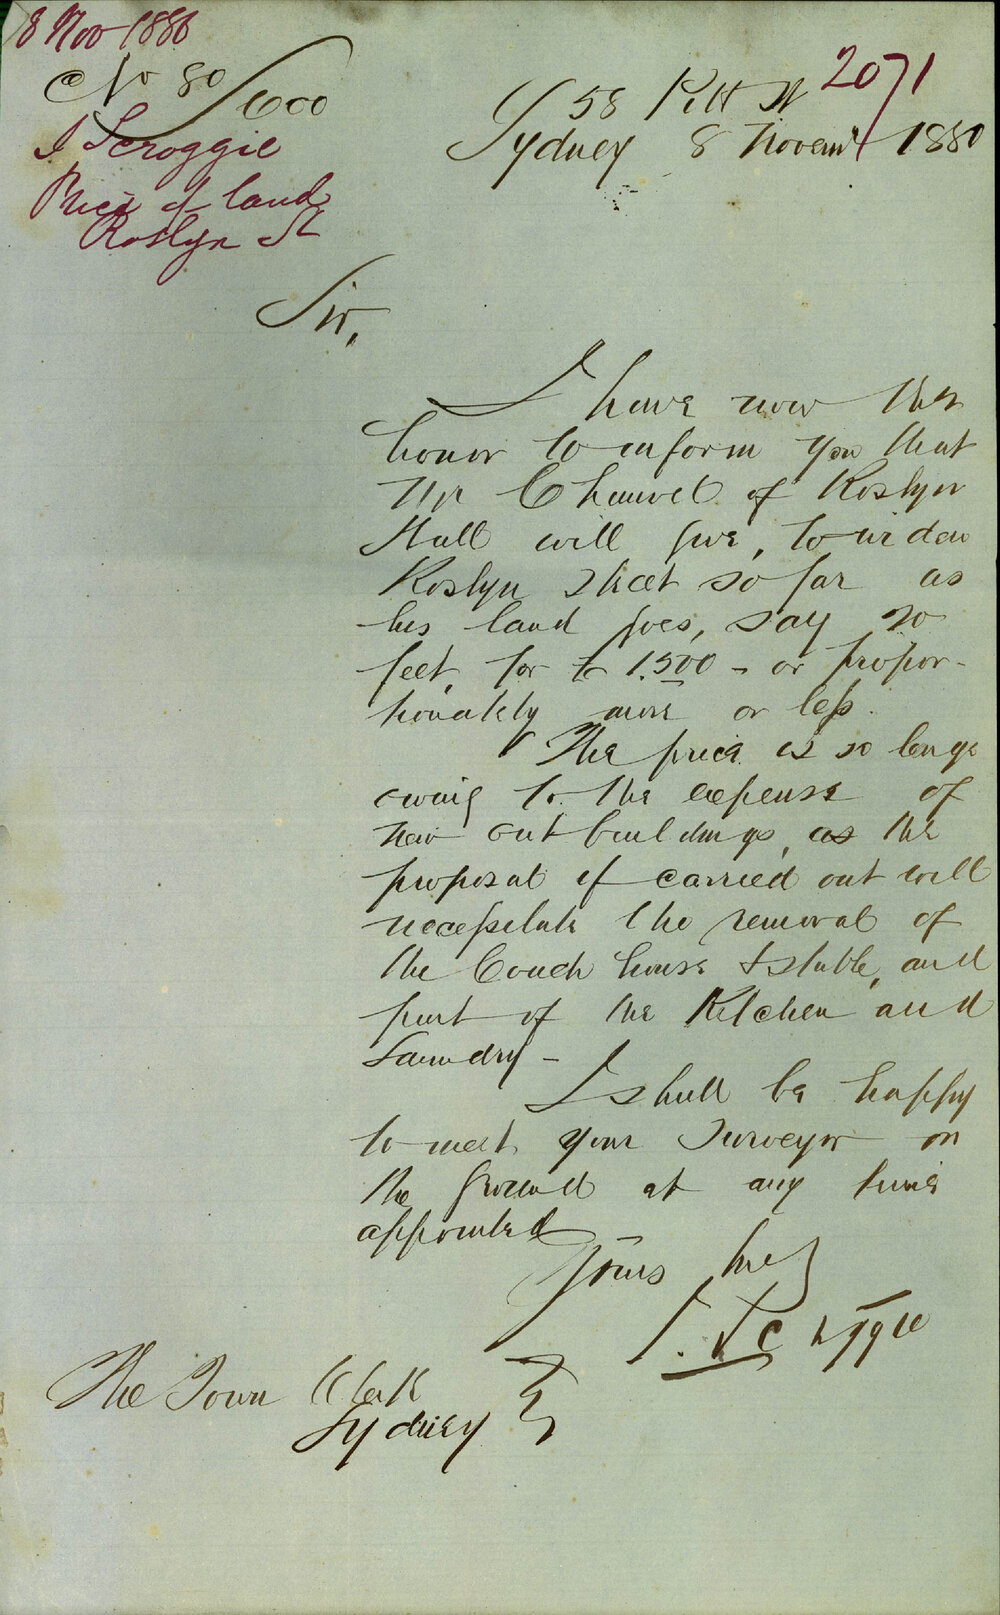 8 Nov 1880
No 80/600
J Scroggie
Price of land
Roslyn St
2071
58 Pitt St
Sydney 8 Novemr 1880
Sir,
I have now the
honor to inform you that
Mr Chauvel of Roslyn
Hall will give, to widen
Roslyn Street so far as
his land goes, say 20
feet, for £1,500 - or propor-
tionately more or less.
The price is so large
owing to the expense of
new out buildings, as the
proposal if carried out will
necessitate the removal of
the Coach house & stable, and
part of the Kitchen and
Laundry -
I shall be happy
to meet your Surveyor on
the ground at any time
appointed
Yours truly
J. Scroggie
The Town Clerk
Sydney